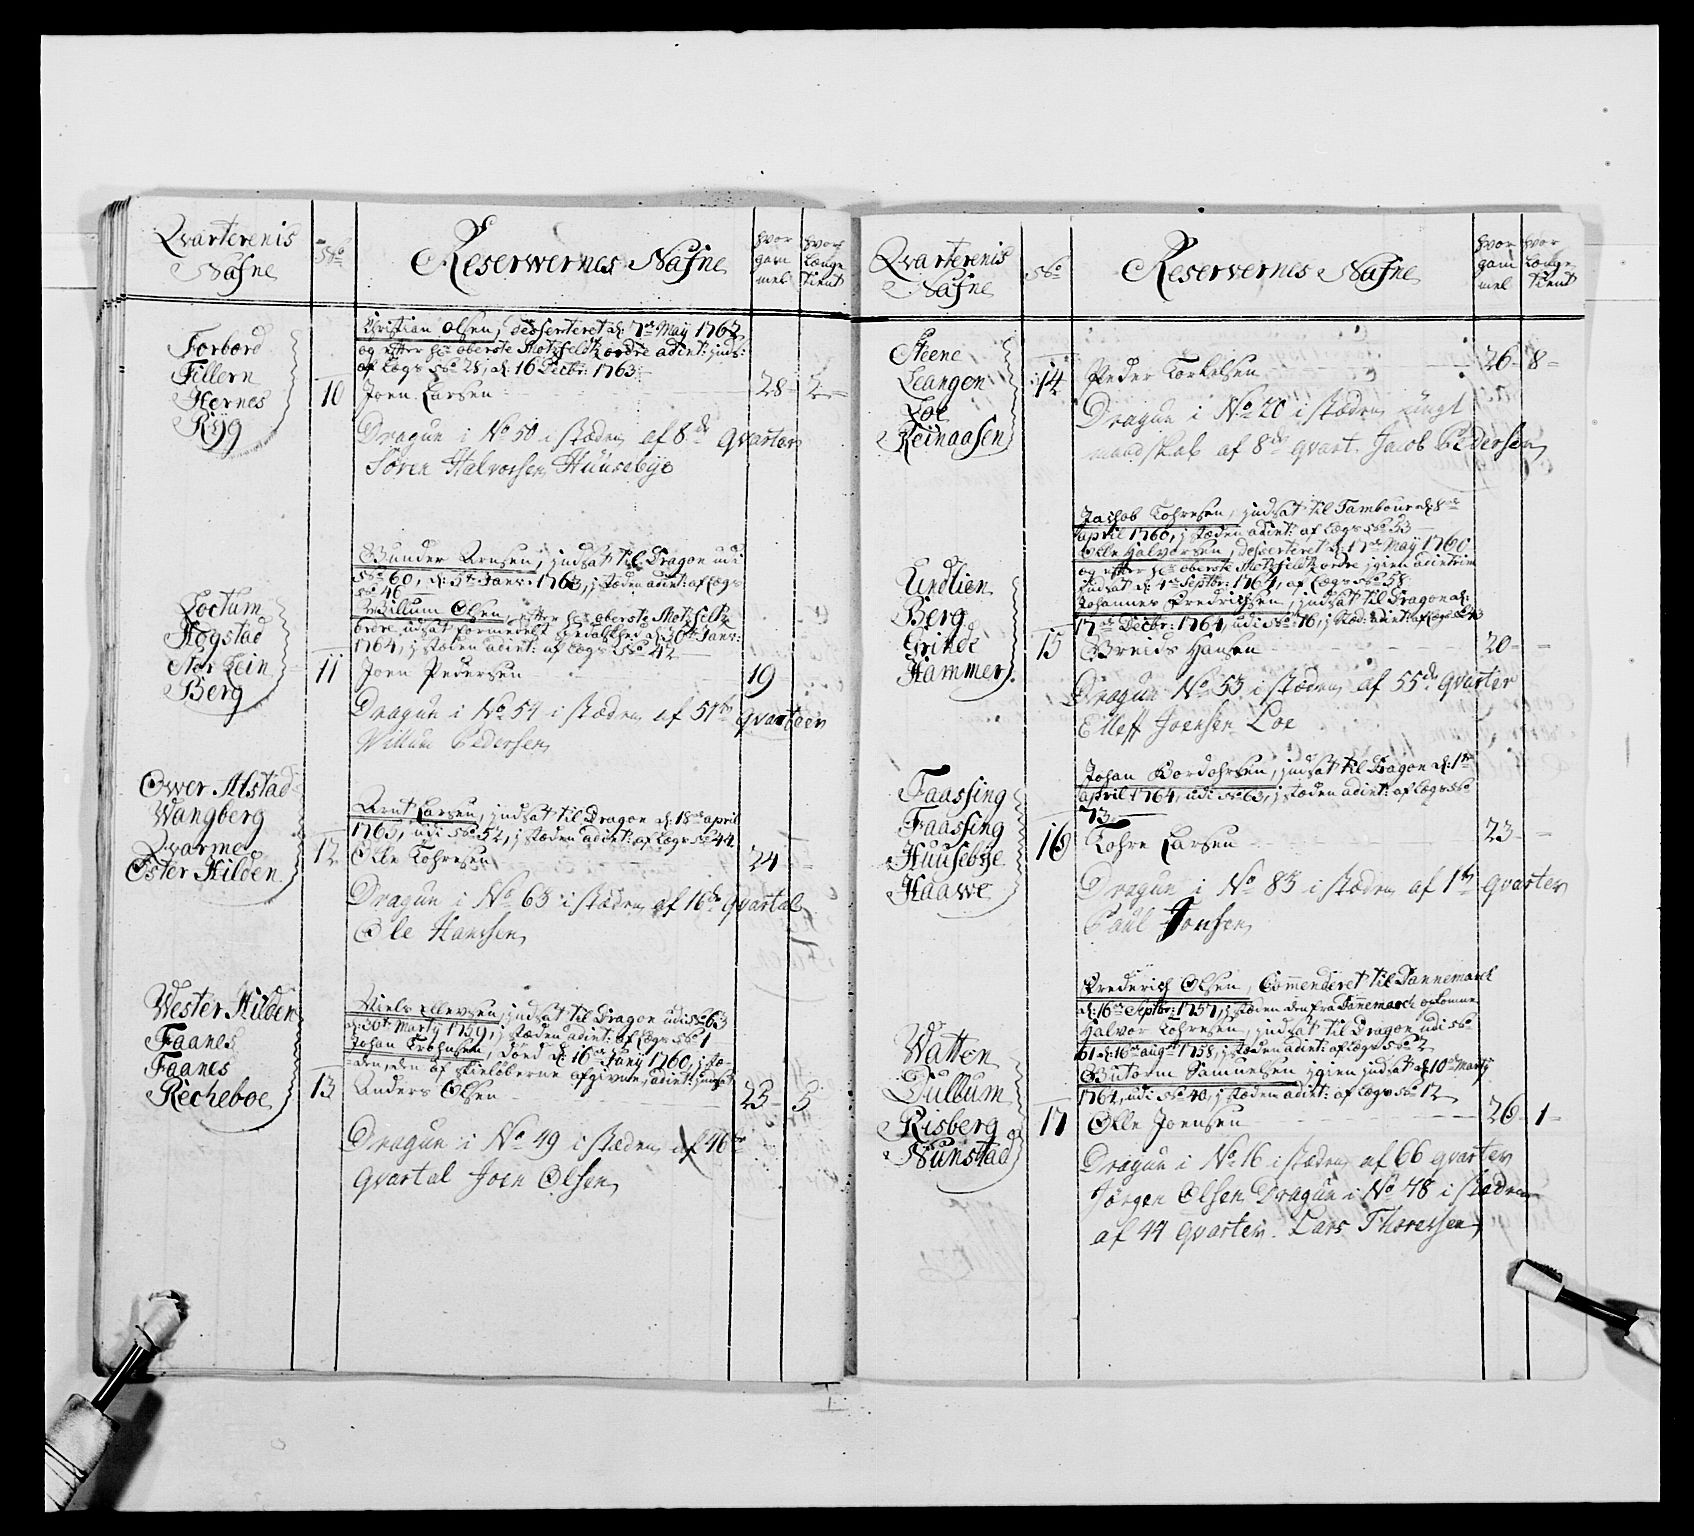 Qvarterenis
Nafne
No
Reserwernes Nafne
hvor
gam
mel
hvor
Længe
tient
Forbord
Fillern
Hernes
Ryg
Christian Olsen, desserteret d: 7de Maÿ 1762
og efter hr oberste Motzfeldtz ordre adint: huds:
af Lægs No 28, d: 16 Decbr: 1763
10
Joen Larsen
28
2
Dragun i No 50 i stæden af 8de qvarter
Sören Halvorsen Huusebÿe
Loctum
Hogstad
Nor Lein
Berg
Gunder Arnsen, jndsat til Dragon udi
No 60, d: 5te Janr: 1763, j stæden adint: af Lægs
No 46
Willum Olsen, efter hr oberste Motzfeltz
ordre, udsat formedelst d: 30te Janr:
1764, j stæden adint: af Lægs No 42
11
Joen Pedersen
19
Dragun i No 54 i stæden af 51te qvarteer
Willum Pedersen
Ower Alstad
Wangberg
Qvarme
Öster Hilden
Arnt Larsen, jndsat til Dragon d: 18de april
1763, udi No 52, j stæden adint: af Lægs No 44
12
Olle Tohresen
24
Dragun i No 63 i stæden af 16de Qvartal
Ole Hanssen
Wester Hilden
Faanes
Faanes
Richeboe
Niels Ellevsen, jndsat til Dragon udi No 63
d: 30te Martÿ 1759, j stæden adint: af Lægs No 1
Johan Trohnsen, död d: 16de Junÿ 1760, j stæ-
den, den af skieløberne afgivne, adint: jndsat
13
Anders Olsen
23
5
Dragun i No 49 i stæden af 46de
qvartal Joen Olsen
Qvarterenis
Nafne
No
Reservernes Nafne
hvor
gam
mel
hvor
Længe
tient
Steene
Leangen
Loe
Reinaasen
14
Peder Torkelsen
26
8
Dragun i No 20 i stæden üngt
mandskab af 8de qvart. Jacob Pedersen
Lindlien
Berg
Grinde
Hammer
Jachob Tohresen, jndsat til Tambour d: 8de
april 1760, j stæden adint: af Lægs No 53
Olle Halvorsen, desserteret d: 17de Maÿ 1760
og efter hr oberste Motzfeldtz ordre jgien adint
Indsat d: 4de Septbr: 1761, af Lægs No 58
Johannes Fredrichsen, jndsat til Dragon d:
17de Decbr: 1764, udi No 76, j stæd: adint: af Lægs No 43
15
Breids Hansen
20
Dragun No 53 i stæden af 55de qvarter
Elleff Joensen Loe
Faassing
Faassing
Huusebÿe
Haawe
Johan Bordohrsen, jndsat til Dragon d: 1ste
april 1764, udi No 63, j stæden adint: af Lægs No
73
16
Tohre Larsen
23
Dragun i No 83 i stæden af 1te qvarter
Paul Jonsen
Watten
Dullum
Risberg
Nunstad
Frederich Olsen, Commenderet til Dannemarck
d: 16de Septbr: 1757, j stæden den fra Dannemarck ankomne
Halvor Tohresen, jndsat til Dragon udi No
61 d: 16de augst 1758, j stæden adint: af Lægs No 2
Gutorm Samuelsen jgien jndsat d: 10de Martÿ
1764, udi No 40, j stæden adint: af Lægs No 12
17
Olle Joensen
26
1
Dragun i No 16 i stæden af 66 qvarter
Jörgen Olsen Dragun i No 48 i stæden
af 44 qvarter. Lars Thoresen